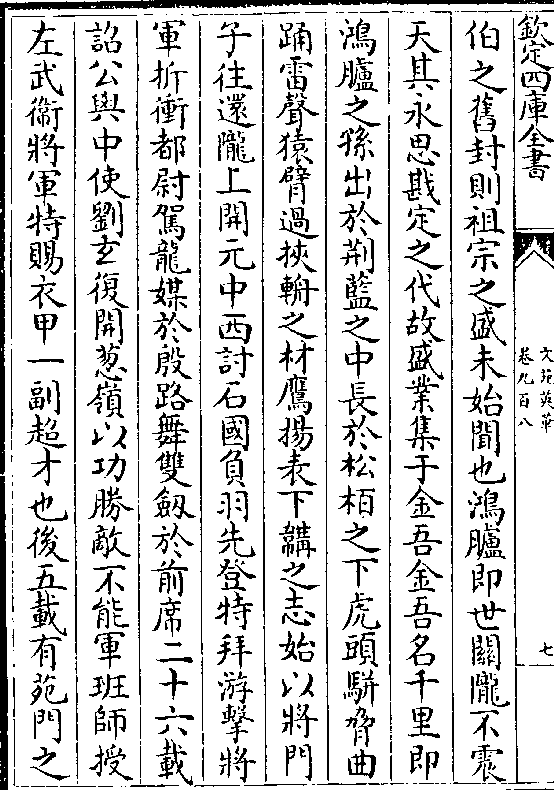 欽定四庫全書
文苑英華
卷九百八
七
伯之舊封則祖宗之盛未始聞也鴻臚即世關隴不震
天其永思戡定之代故盛業集于金吾金吾名千里即
鴻臚之孫出於荆藍之中長於松栢之下虎頭駢脅曲
踊雷聲猿臂過挾輈之材鷹揚表下韝之志始以將門
子往還隴上開元中西討石國負羽先登特拜游擊將
軍折衝都尉駕龍媒於殷路舞雙劒於前席二十六載
詔公與中使劉玄復開葱嶺以功勝敵不能軍班師授
左武衛將軍特賜衣甲一副超才也後五載有苑門之